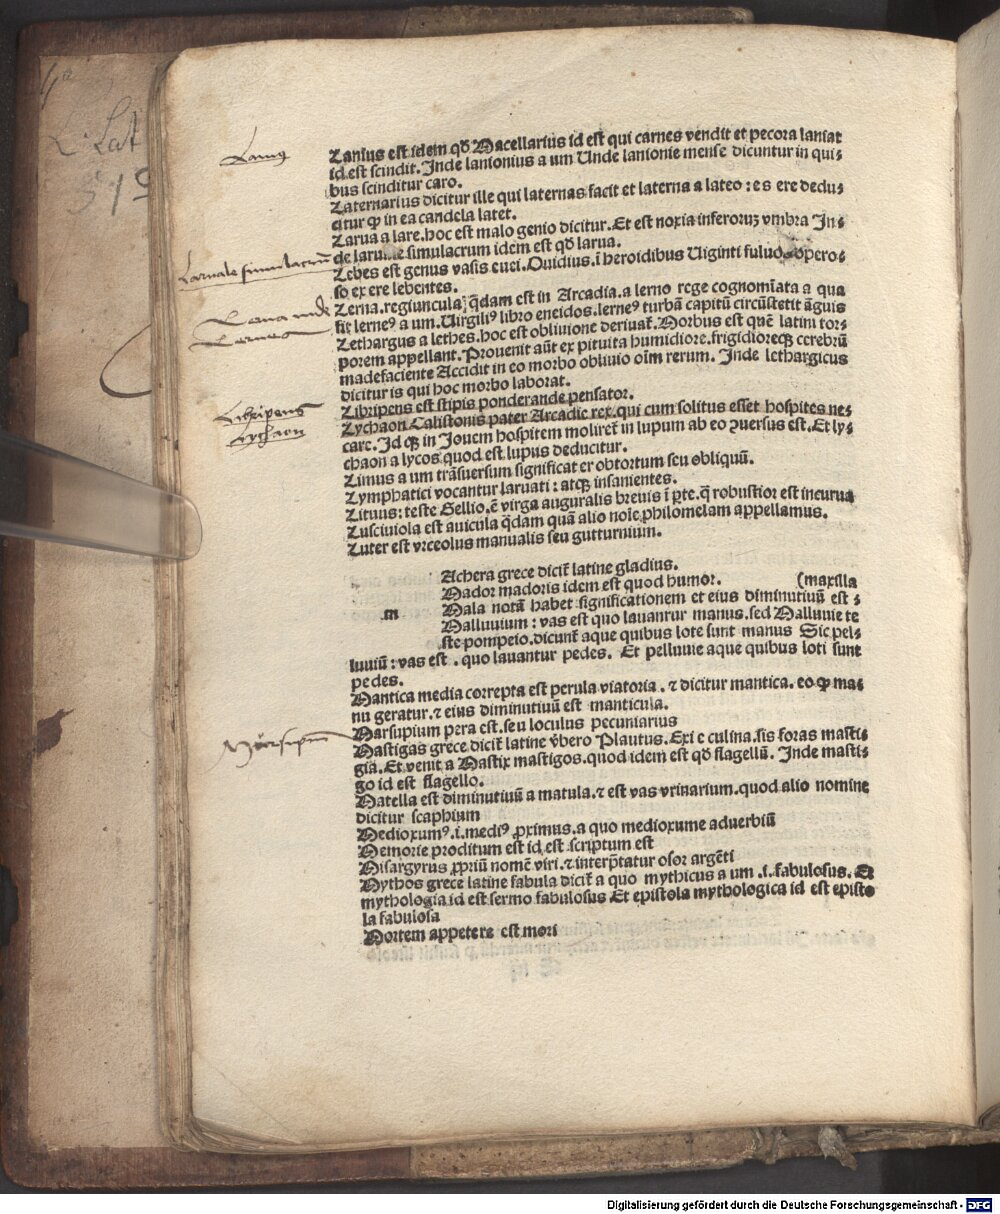 Lanius
Lanius est idem qđ Macellarius id est qui carnes vendit et pecora laniat
id est scindit. Inde lanionius a um Unde lanionie mense dicuntur in qui⸗
bus scinditur caro.
Laternarius dicitur ille qui laternas facit et laterna a lateo : es ere dedu⸗
citur ꝙ in ea candela latet.
Larua a lare. hoc est malo genio dicitur. Et est noxia inferoruꝫ vmbra In⸗
Laruale simulacrū
de laruale simulacrum idem est qđ larua.
Lebes est genus vasis enei. Ouidius. ī heroidibus Uiginti fuluos opero⸗
so ex ere lebentes.
Lerna vnde
Lerneus
Lerna. regiuncula qͥdam est in Arcadia. a lerno rege cognomīata a qua
fit lernꝰ a um. Uirgiliꝰ libro eneidos. lernꝰ turbā capitū circūstetit āguis
Lethargus a lethes. hoc est obliuione deriuať. Morbus est quē latini tor⸗
porem appellant. Prouenit aūt ex pituita humidiore. frigidioreqꝫ cerebrū
madefaciente Accidit in eo morbo obliuio oīm rerum. Inde lethargicus
dicitur is qui hoc morbo laborat.
Libripens
Libripens est stipis ponderande pensator.
Lychaon
Lychaon Calistonis pater Arcadie rex. qui cum solitus esset hospites ne⸗
care. Id qꝫ in Iouem hospitem moliret in lupum ab eo ꝯuersus est. Et ly⸗
chaon a lycos quod est lupus deducitur.
Limus a um trāsuersum significat et obtortum seu obliquū.
Lymphatici vocantur laruati : atqꝫ insanientes.
Lituus : teste Gellio. ē virga auguralis breuis ī ꝑte. q̄ robustior est incurua
Lusciuiola est auicula qͥdam quā alio noīe philomelam appellamus.
Luter est vrceolus manualis seu gutturnium.
m
Achera grece dicit̄ latine gladius.
Mador madoris idem est quod humor. (maxilla
Mala notā habet significationem et eius diminutiuū est :
Malluuium : vas est quo lauanrur manus. sed Malluuie te
ste pompeio. dicunt̄ aque quibus lote sunt manus Sic pel⸗
luuiū : vas est . quo lauantur pedes. Et pelluuie aque quibus loti sunt
pedes.
Mantica media correpta est perula viatoria . ⁊ dicitur mantica. eo ꝙ ma⸗
nu geratur. ⁊ eius diminutiuū est manticula.
Marsupium
Marsupium pera est. seu loculus pecuniarius
Mastigas grece dicit̄ latine v̄bero Plautus. Exi e culina. sis foras masti⸗
gia. Et venit a Mastix mastigos. quod idem est qđ flagellū. Inde masti⸗
go id est flagello.
Matella est diminutiuū a matula. ⁊ est vas vrinarium. quod alio nomine
dicitur scaphium
Medioxumꝰ. i. mediꝰ ꝓximus. a quo medioxume aduerbiū
Memorie proditum est id est scriptum est
Misargyrus ꝓpriū nomē viri. ⁊ interp̄tatur osor argēti
Mythos grece latine fabula dicit̄ a quo mythicus a um .i. fabulosus. Et
mythologia id est sermo fabulosus Et epistola mythologica id est episto
la fabulosa
Mortem appetere est mori
L. Lat
Digitalisierung gefördert durch die Deutsche Forschungsgemeinschaft - DFG